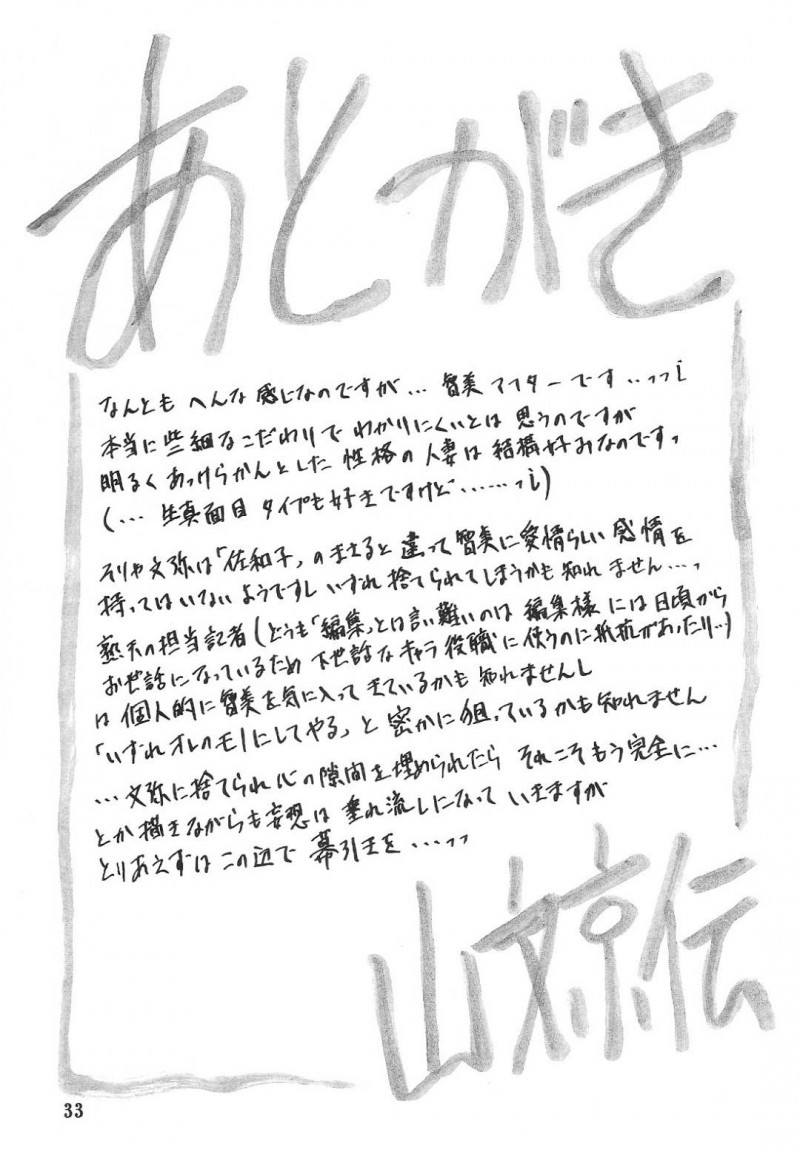 あとがき
なんとも へんな 感じなのですが… 智美 アフターです …っっ¡
本当に些細なこだわりで わかりにくいとは 思うのですが
明るく あっけらかんとした 性格の 人妻は 結構好みなのですっ
(… 生真面目 タイプも好きですけど ……っ¡)
そりゃ文弥は「佐和子」のまさると 違って 智美に愛情らしい 感情を
持ってはいないようですし いずれ 捨てられてしまうかも 知れ ません…っ
塾天の担当記者(どうも「編集」とは言い難いのは 編集様 には日頃から
お世話になっているため 下世話な キャラ 役職に 使うのに抵抗があったり…)
は 個人的に智美を気に入って きているかも 知れませんし
「いずれオレのモノにしてやる」と 密かに狙っているかも知れません
…文弥に捨てられ心の隙間を埋められたら それこそもう完全に…
とか描きながらも妄想は 垂れ流しになって いきますが
とりあえずはこの辺で 幕引きを…っっ
山文京伝
33